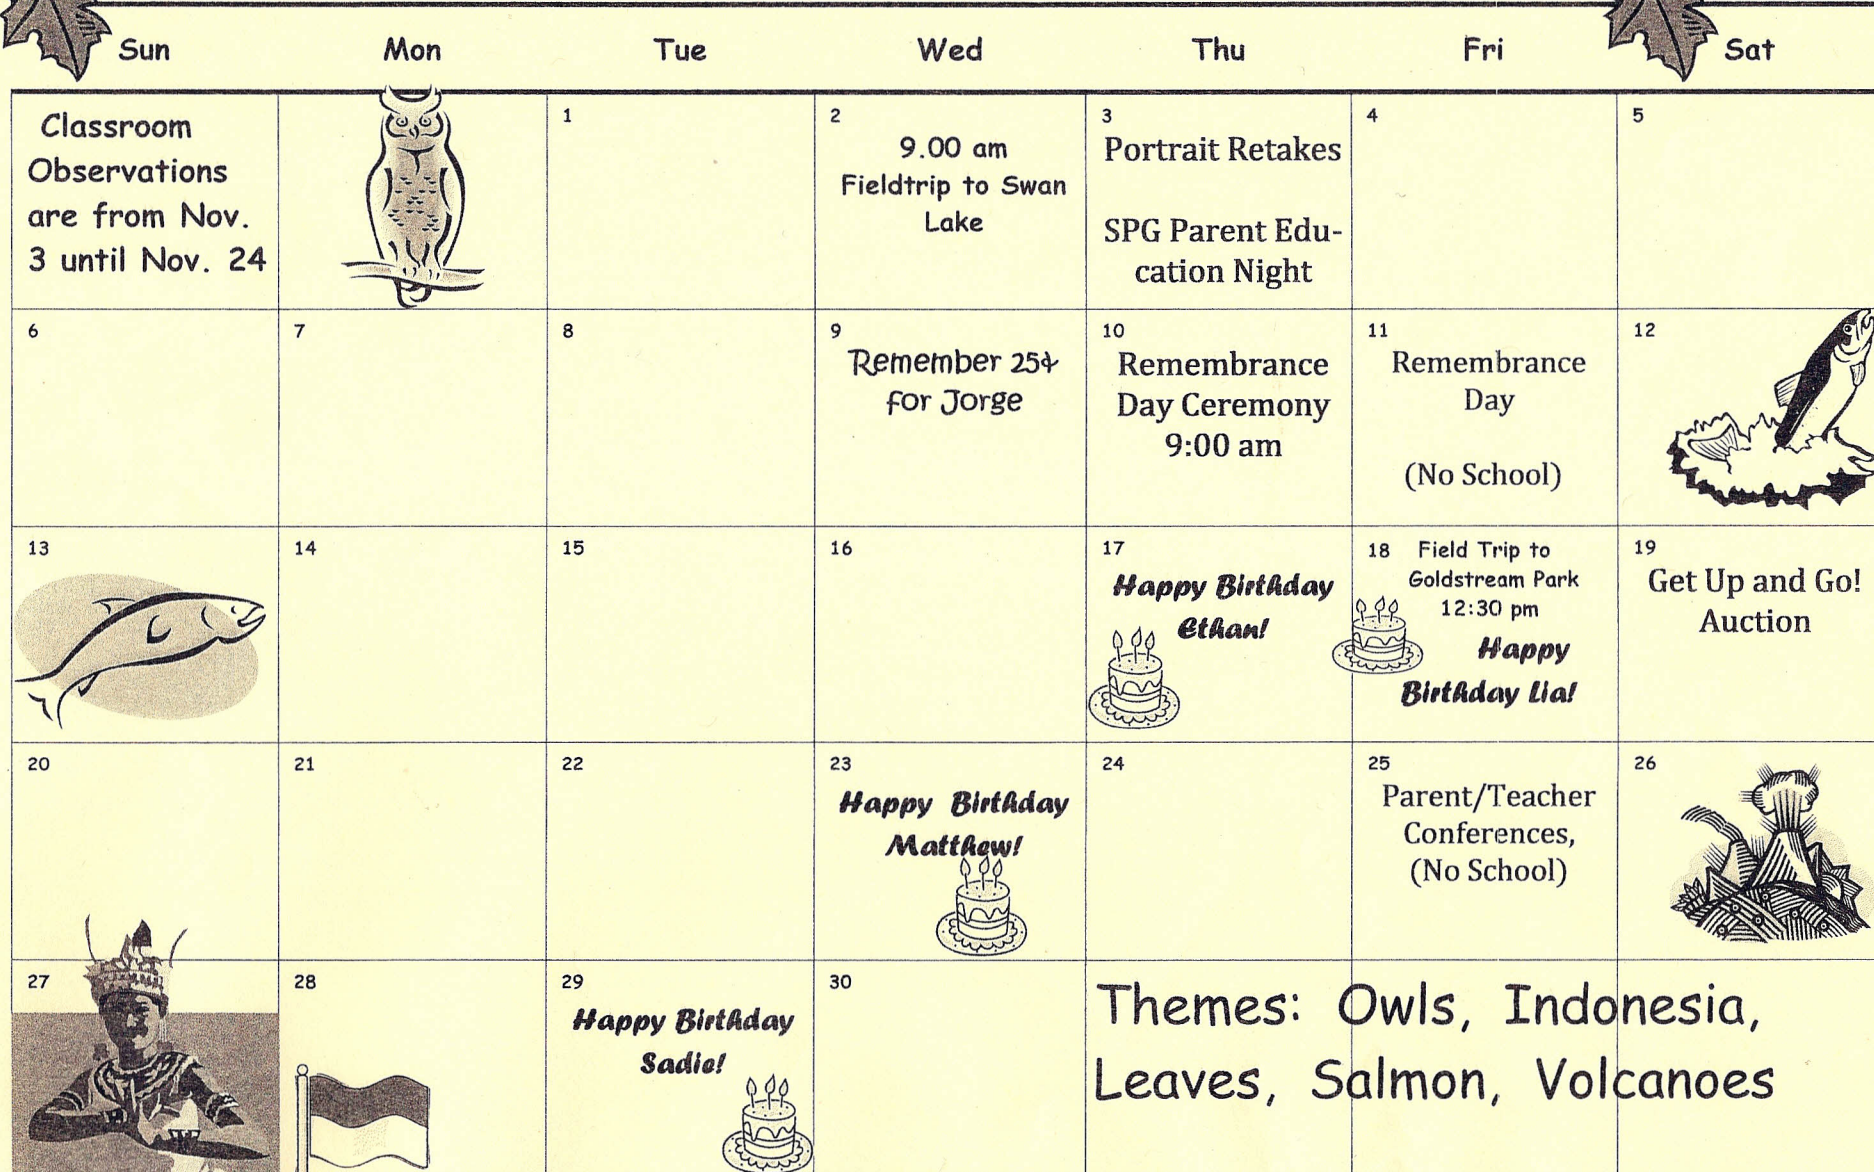 Sun Mon Tue Wed Thu Fri Sat
Classroom
Observations
are from Nov.
3 until Nov. 24
1
2
9.00 am
Fieldtrip to Swan
Lake
3
Portrait Retakes
SPG Parent Edu-
cation Night
4
5
6
7
8
9
Remember 25¢
for Jorge
10
Remembrance
Day Ceremony
9:00 am
11
Remembrance
Day
(No School)
12
13
14
15
16
17
Happy Birthday
Ethan!
18 Field Trip to
Goldstream Park
12:30 pm
Happy
Birthday Lia!
19
Get Up and Go!
Auction
20
21
22
23
Happy Birthday
Matthew!
24
25
Parent/Teacher
Conferences,
(No School)
26
27
28
29
Happy Birthday
Sadie!
30
Themes: Owls, Indonesia,
Leaves, Salmon, Volcanoes